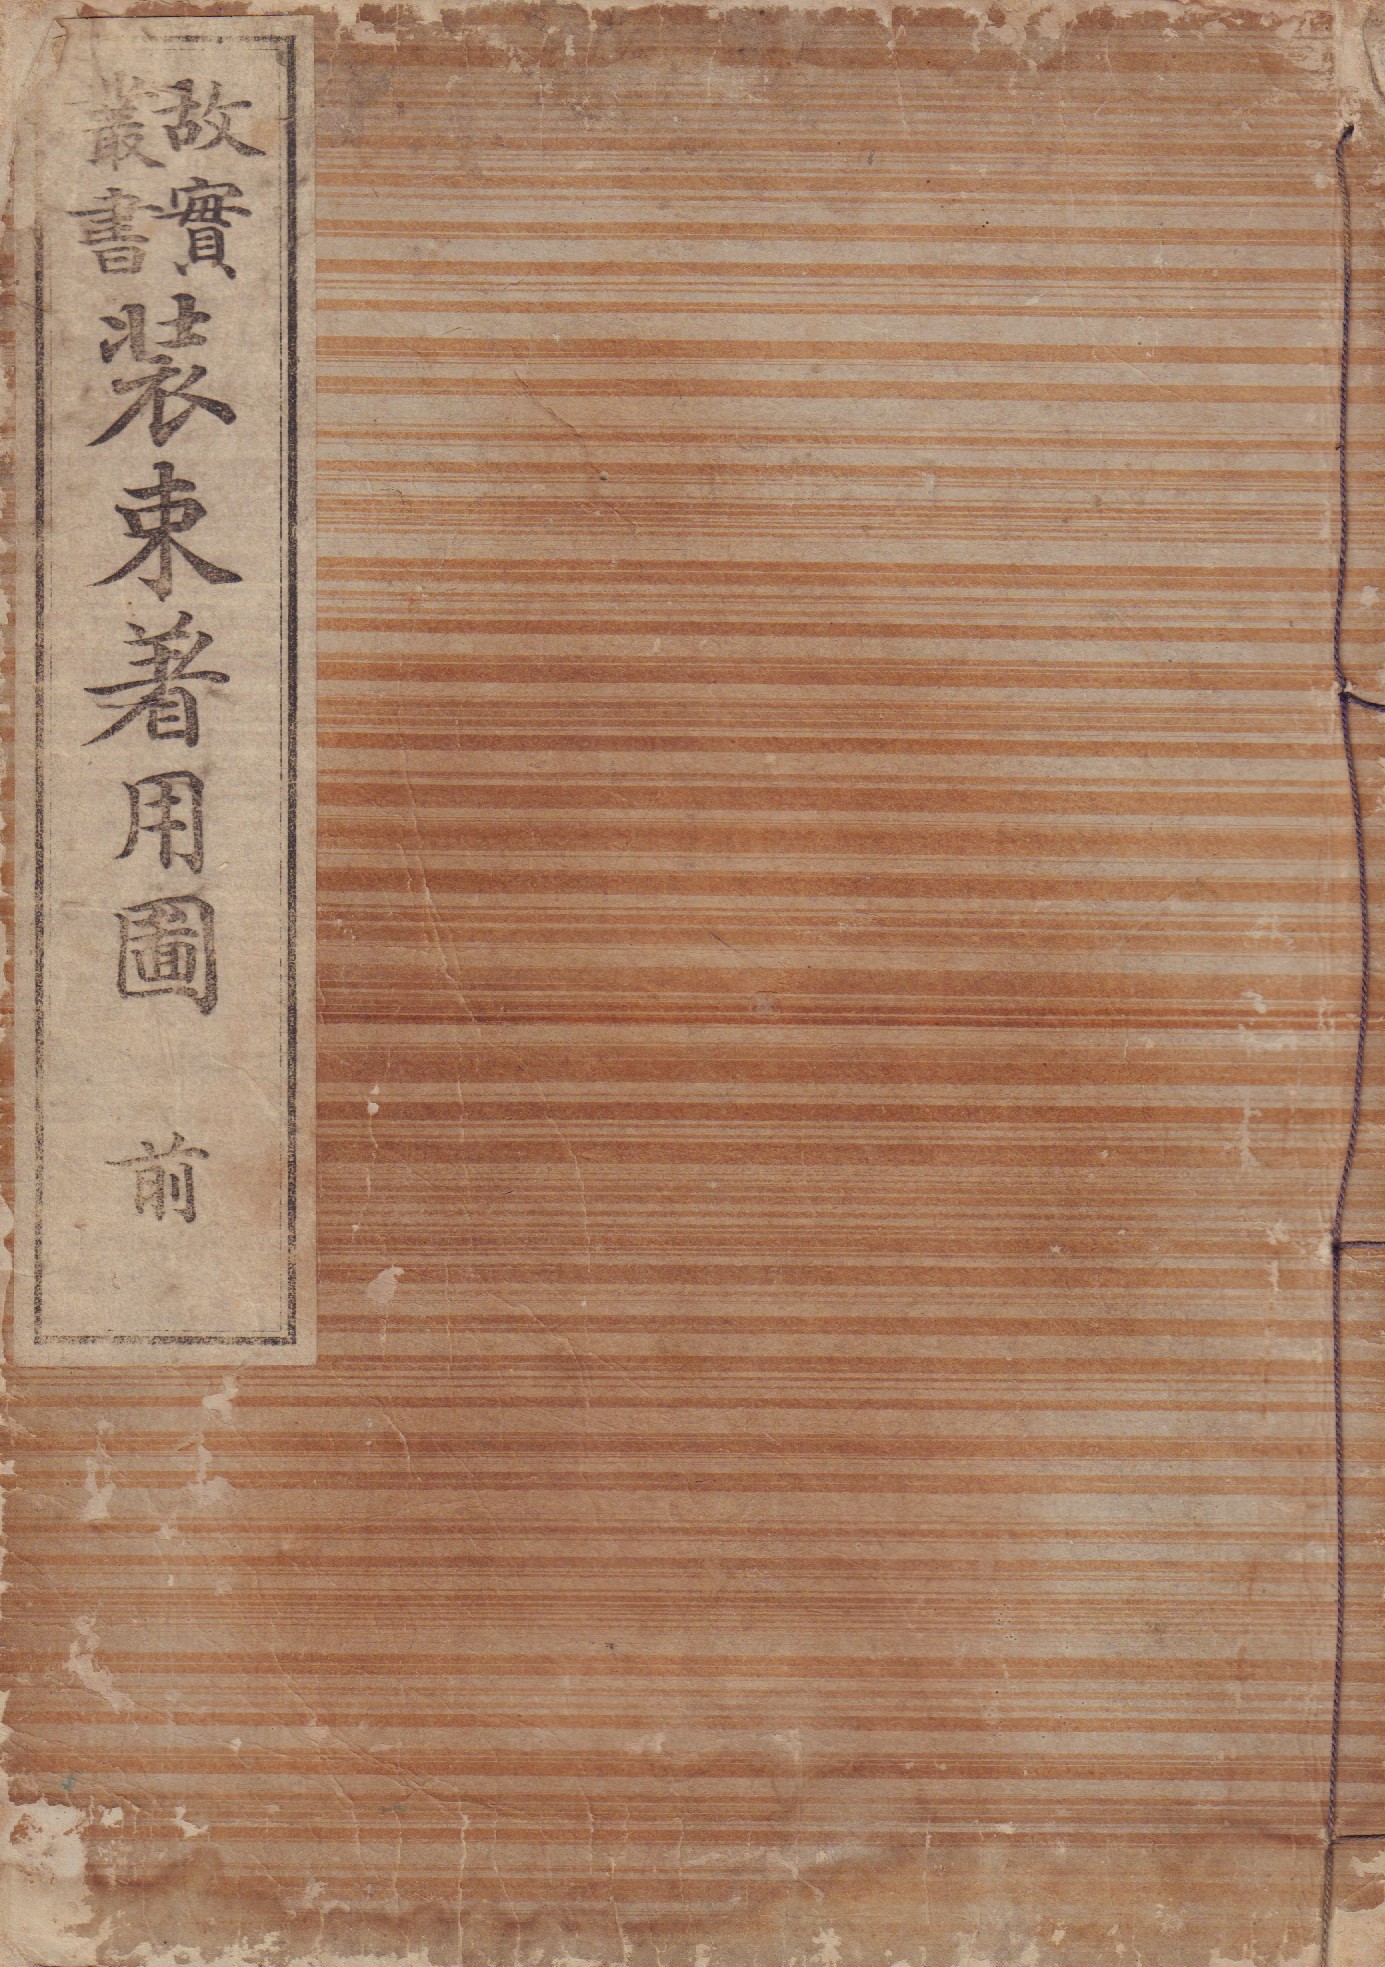 故實
叢書
装束著用圖 前